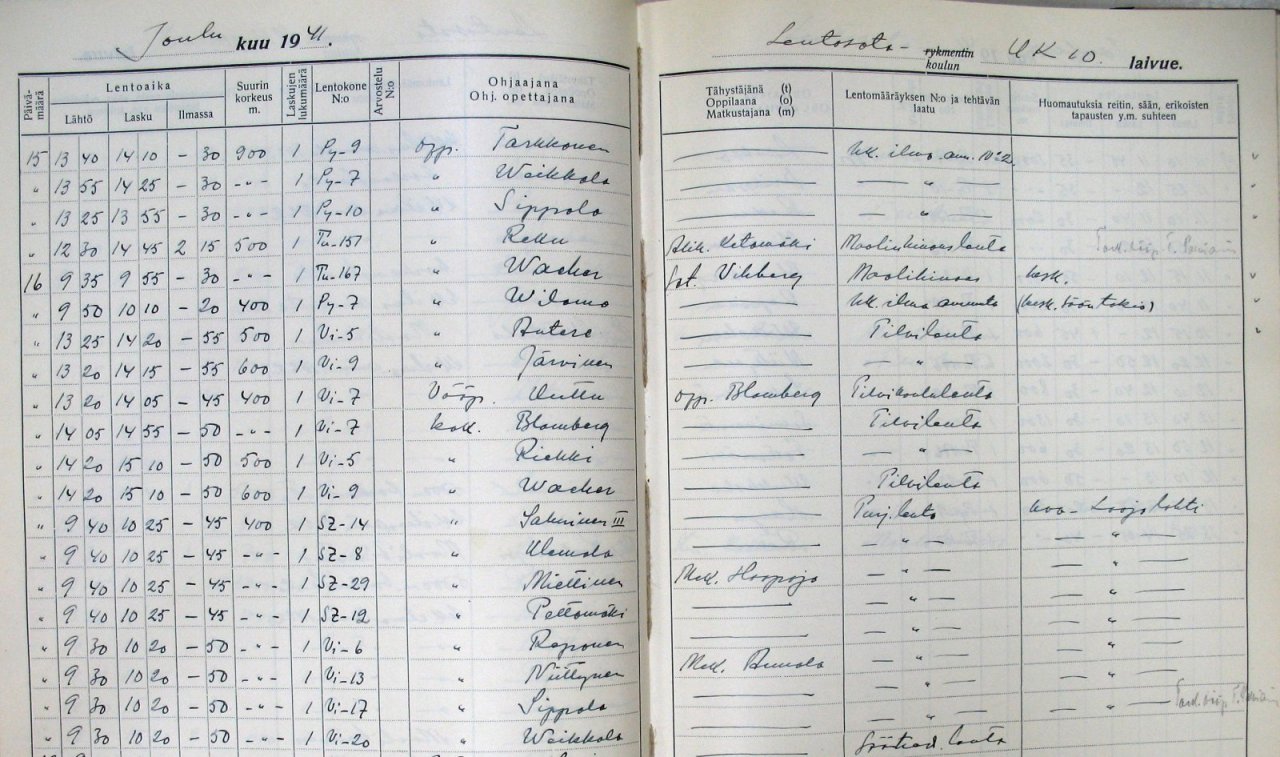 Joulu kuu 1941.
Lentosota- rykmentin koulun UK 10. laivue.
Päivämäärä Lentoaika Suurin korkeus m. Laskujen lukumäärä Lentokone N:o Arvostelu N:o Ohjaajana Ohj. opettajana Tähystäjänä (t) Oppilaana (o) Matkustajana (m) Lentomääräyksen N:o ja tehtävän laatu Huomautuksia reitin, sään, erikoisten tapausten y.m. suhteen
Lähtö Lasku Ilmassa
15 13 40 14 10 – 30 900 1 Py-9 opp. Tarkkonen — Uk. ilma-amm.
" 13 55 14 25 – 30 -"- 1 Py-7 " Weikkola — — " —
" 13 25 13 55 – 30 -"- 1 Py-10 " Sippola — — " —
" 12 30 14 45 2 15 500 1 Tu-151 " Reku Ketomäki Maalinhinauslento
16 9 35 9 55 – 30 -"- 1 Tu-167 " Wacker Vikberg Maalihinaus kesk.
" 9 50 10 10 – 20 400 1 Py-7 " Wilamo — Uk. ilma ammunta
" 13 25 14 20 – 55 500 1 Vi-5 " Antere — Pilvilento
" 13 20 14 15 – 55 600 1 Vi-9 " Järvinen — — " —
" 13 20 14 05 – 45 400 1 Vi-7 Vääp. Uuttu opp. Blomberg Pilvikoululento
" 14 05 14 55 – 50 -"- 1 Vi-7 kok. Blomberg — Pilvilento
" 14 20 15 10 – 50 500 1 Vi-5 " Riekki — — " —
" 14 20 15 10 – 50 600 1 Vi-9 " Wacker — Pilvilento
" 9 40 10 25 – 45 400 1 SZ-14 " Salminen III — Purj. lento
" 9 40 10 25 – 45 -"- 1 SZ-8 " Alamola — — " — — " —
" 9 40 10 25 – 45 -"- 1 SZ-29 " Miettinen Mek. Haapoja — " — — " —
" 9 40 10 25 – 45 -"- 1 SZ-12 " Peltomäki — — " — — " —
" 9 30 10 20 – 50 -"- 1 Vi-6 " Raponen — — " — — " —
" 9 30 10 20 – 50 -"- 1 Vi-13 " Niittynen Mek. Annala — " — — " —
" 9 30 10 20 – 50 -"- 1 Vi-17 " Sippola — — " — — " —
" 9 30 10 20 – 50 -"- 1 Vi-20 " Weikkola — — " — — " —
lento